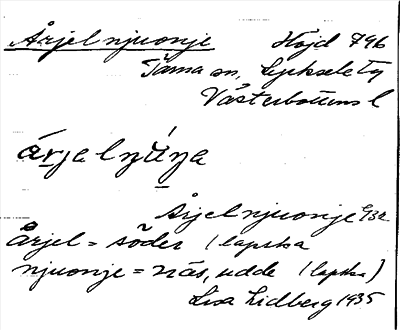 Årjelnjuonje Höjd 796
Tärna sn, Lycksele tg
Västerbottens l
árjalŋūṇa
Årjelnjuonje 932
Årjel = söder (lapska
njuonje = näs, udde (lapska)
Lisa Lidberg 1935